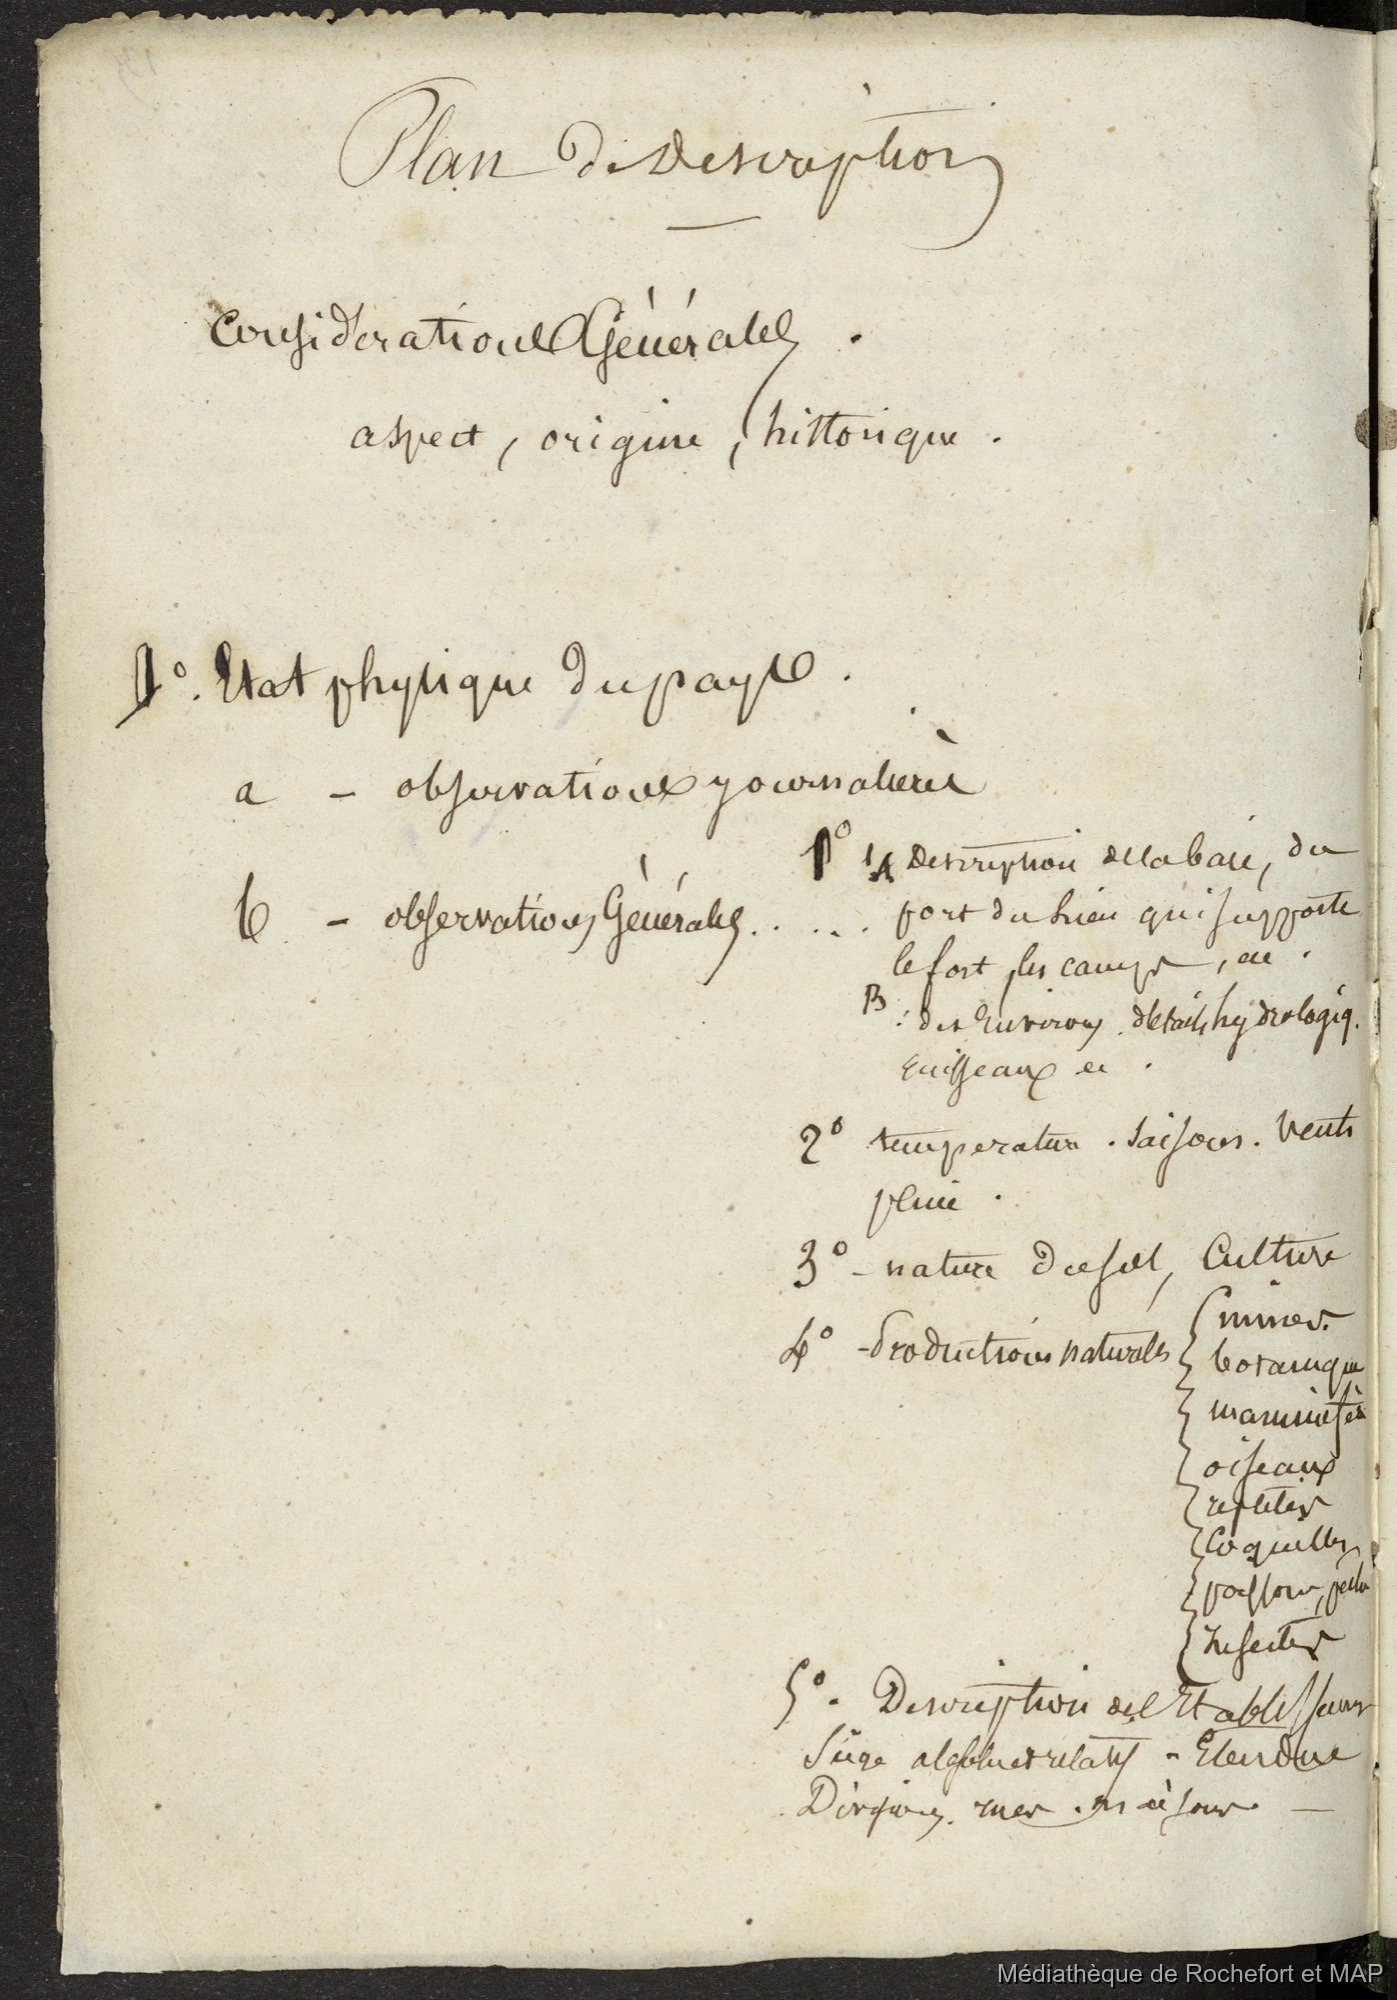 Plan de Description
Considerations Générales.
aspect, origine, historique.
1º. Etat physique du pays.
a - observations journalieres
b - observations Générales.....
1º A Description de la baie, du
port du lieu qui supporte
le fort, les camps, &c.
B: des Environs. détails hydrologiq.
ruisseaux &c.
2º temperature. saisons. Vents
pluie.
3º - nature du sol, Culture
4º - Productions naturelles
miner.
botanique
mammifères
oiseaux
reptiles
Coquilles
poissons, pêche
Insectes
5º. Description de l'Etablissement
Siège absolu et relatif - Etendue
Divisions. rues. maisons. —
Médiathèque de Rochefort et MAP